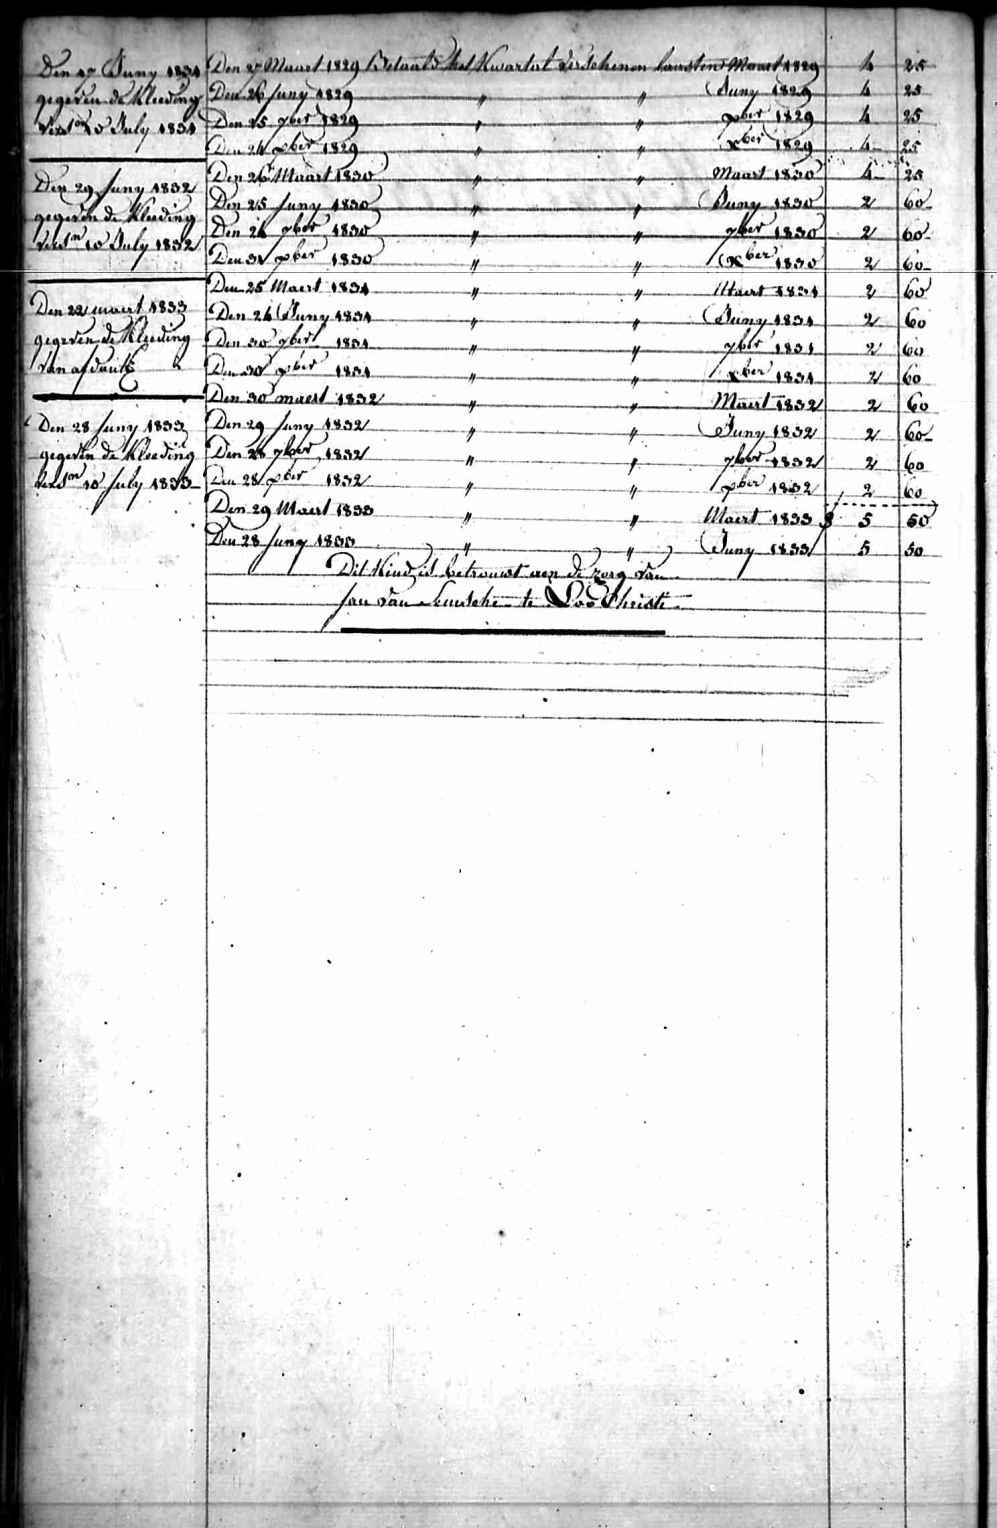 Den 17 Juny 1831
gegeven de Kleeding
verse 10 July 1831
Den 29 Juny 1832
gegeven de Kleeding
verse 10 July 1832
Den 22 maert 1833
gegeven de Kleeding
van
Den 28 Juny 1833
gegeven de Kleeding
verse 10 July 1833
Den 27 Maart 1829 Betaald het Kwartal Verschenen laesten Maart 1829 4 25
Den 26 Juny 1829 " " Juny 1829 4 25
Den 25 7ber 1829 " " 7ber 1829 4 25
Den 24 xber 1829 " " xber 1829 4 25
Den 26 Maart 1830 Maart 1830 4 25
Den 25 Juny 1830 " " Juny 1830 2 60
Den 24 7ber 1830 " " 7ber 1830 2 60
Den 31 xber 1830 " " xber 1830 2 60
Den 25 Maert 1831 " " Maert 1831 2 60
Den 24 Juny 1831 " " Juny 1831 2 60
Den 30 7ber 1831 " " 7ber 1831 2 60
Den 30 xber 1831 " " xber 1831 2 60
Den 30 maert 1832 " " Maert 1832 2 60
Den 29 Juny 1832 " " Juny 1832 2 60
Den 28 7ber 1832 " " 7ber 1832 2 60
Den 28 xber 1832 " " xber 1832 2 60
Den 29 Maert 1833 " " Maert 1833 5 50
Den 28 Juny 1833 " " Juny 1833 5 50
Dit Kind is betrouwt aen de zorg van
Jan Van te Loo Christi